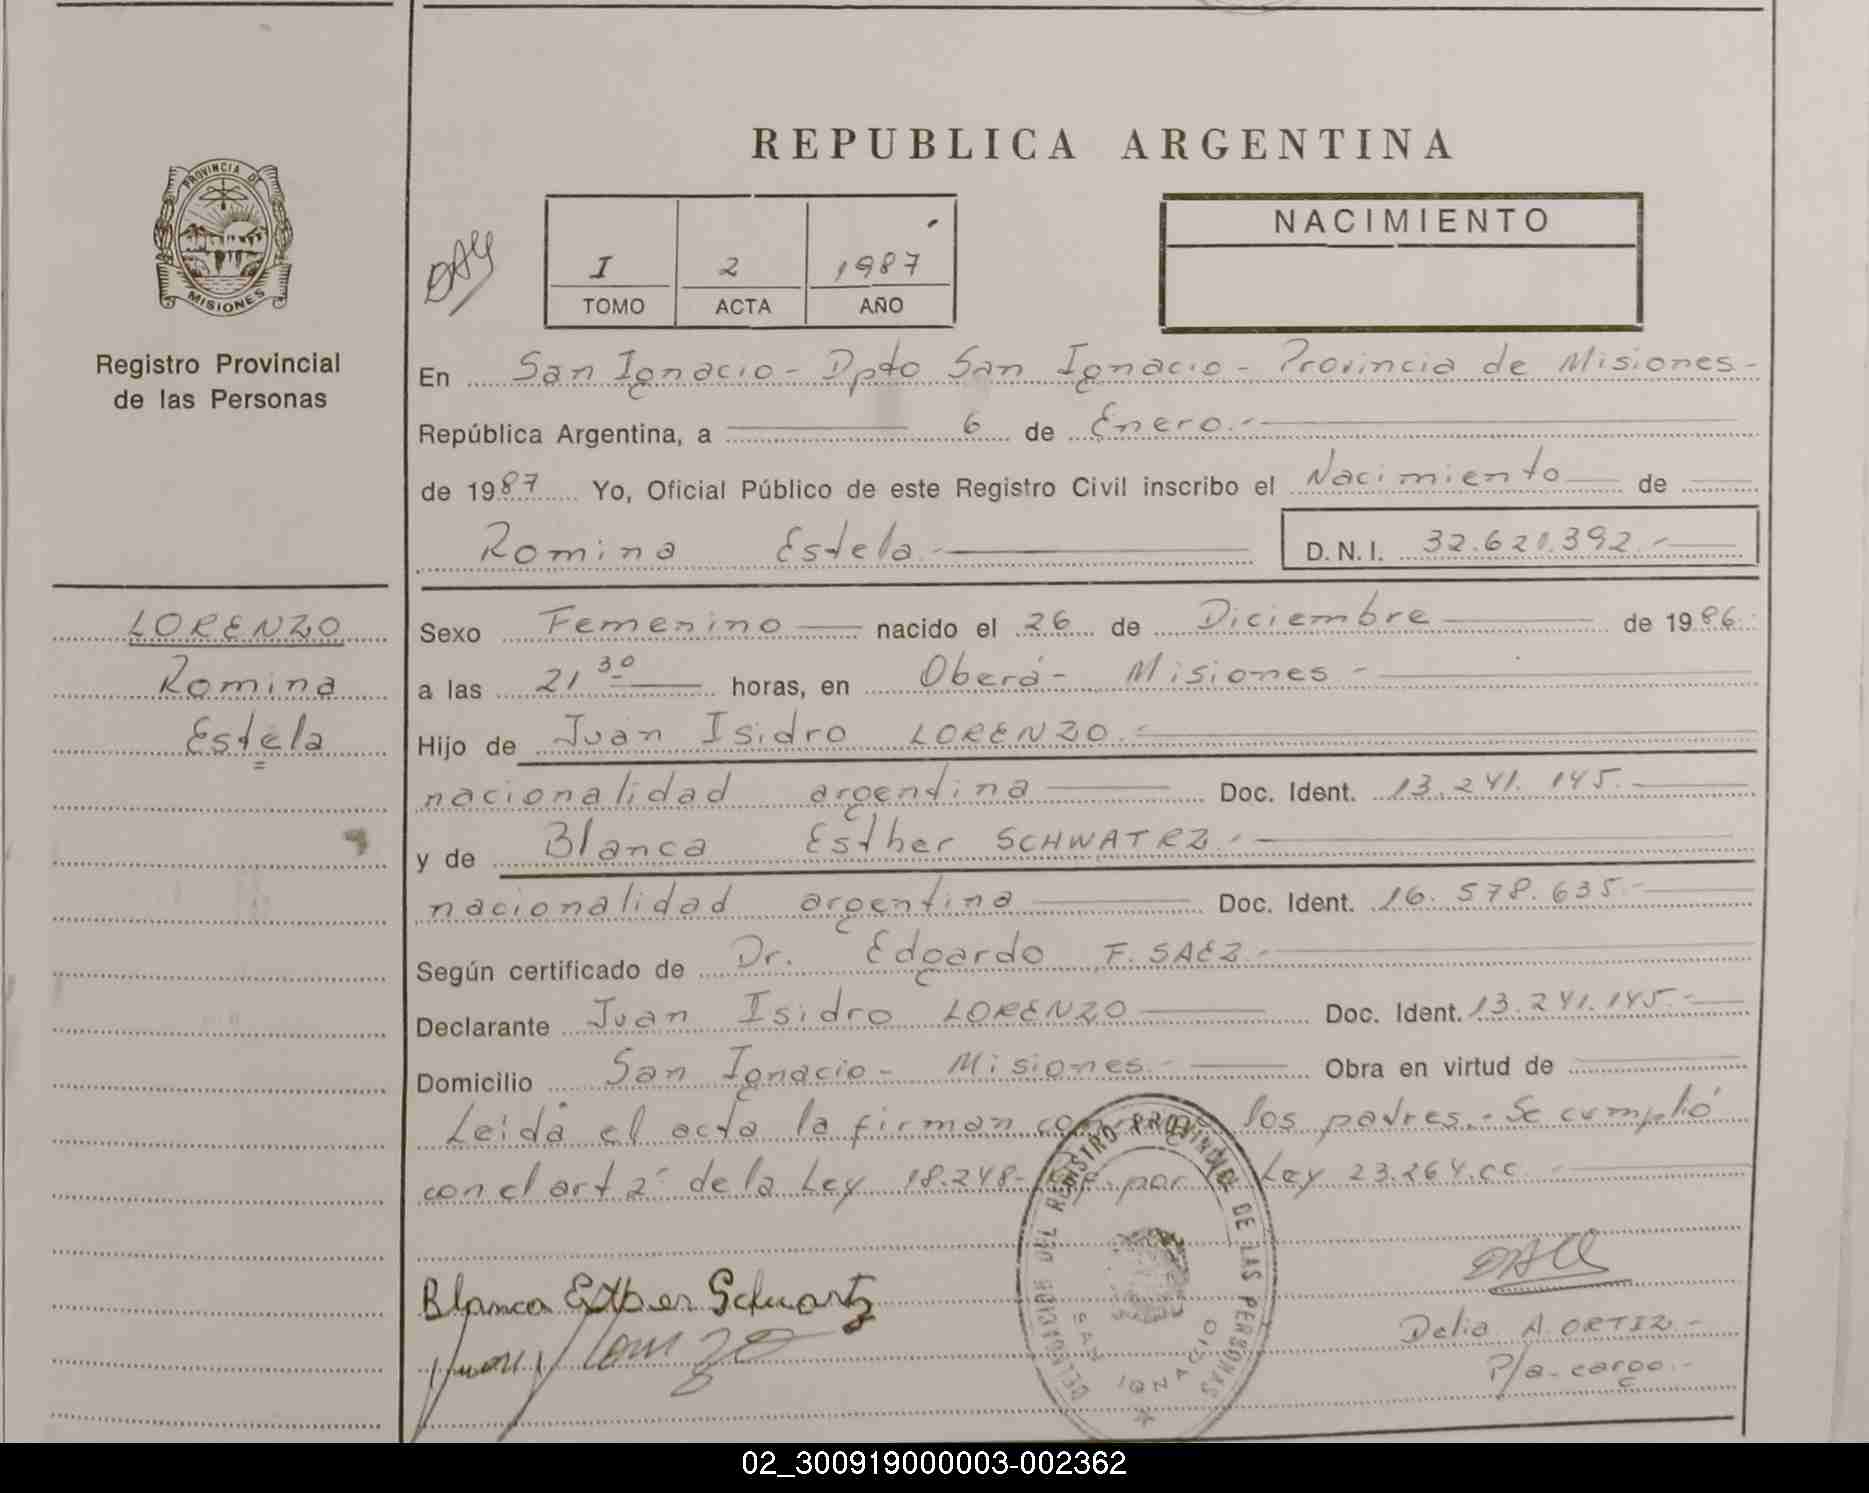 REPUBLICA ARGENTINA
PROVINCIA DE
MISIONES
Registro Provincial
de las Personas
I 2 1987
TOMO ACTA AÑO
NACIMIENTO
En San Ignacio - Dpto San Ignacio - Provincia de Misiones -
República Argentina, a 6 de Enero.-
de 1987 Yo, Oficial Público de este Registro Civil inscribo el Nacimiento de
Romina Estela.- D.N.I. 32.621.392.-
LORENZO
Romina
Estela
Sexo Femenino nacido el 26 de Diciembre de 1986
a las 21 30 horas, en Oberá - Misiones -
Hijo de Juan Isidro LORENZO.-
nacionalidad argentina Doc. Ident. 13.241.145.-
y de Blanca Esther SCHWATRZ.-
nacionalidad argentina Doc. Ident. 16.578.635.-
Según certificado de Dr. Edgardo F. SAEZ.-
Declarante Juan Isidro LORENZO Doc. Ident. 13.241.145.-
Domicilio San Ignacio - Misiones.- Obra en virtud de
Leída el acta la firman los padres.- Se cumplió
con el art 2° de la Ley 18.248- por Ley 23.264.cc.-
DELEGACION DEL REGISTRO PROVINCIAL DE LAS PERSONAS
SAN IGNACIO
Blanca Esther Schwartz
Delia A. ORTIZ.-
P/a. cargo.-
02_300919000003-002362